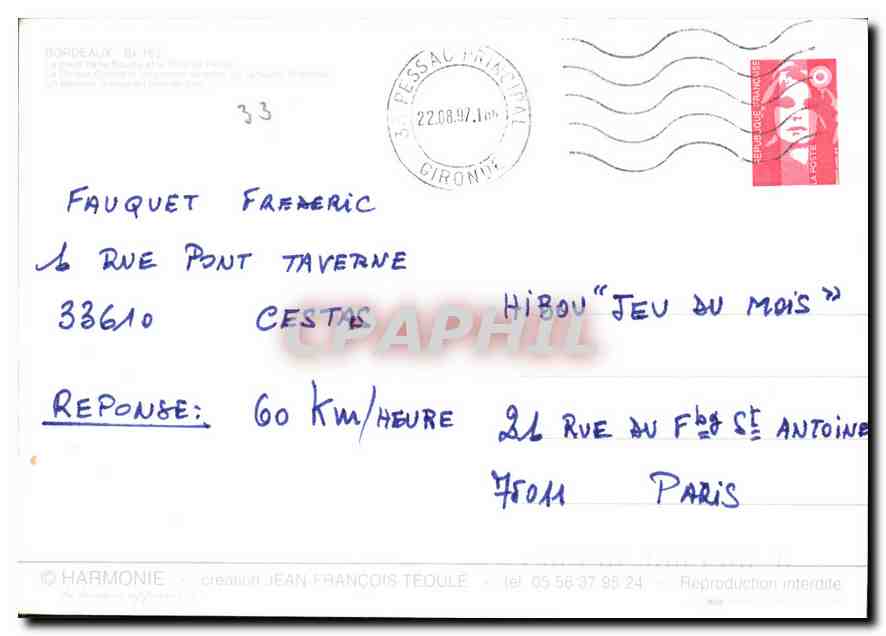 BORDEAUX
33
33 PESSAC PRINCIPAL
22.08.97
GIRONDE
REPUBLIQUE FRANÇAISE
LA POSTE
FAUQUET FREDERIC
1 RUE PONT TAVERNE
33610 CESTAS
REPONSE: 60 Km/HEURE
HiBOU "JEU DU MOiS"
21 RUE DU Fbg St ANTOINE
75011 PARiS
CPAPHIL
© HARMONIE - création JEAN-FRANÇOIS TÉOULÉ - tel. 05 56 37 95 24 - Reproduction interdite